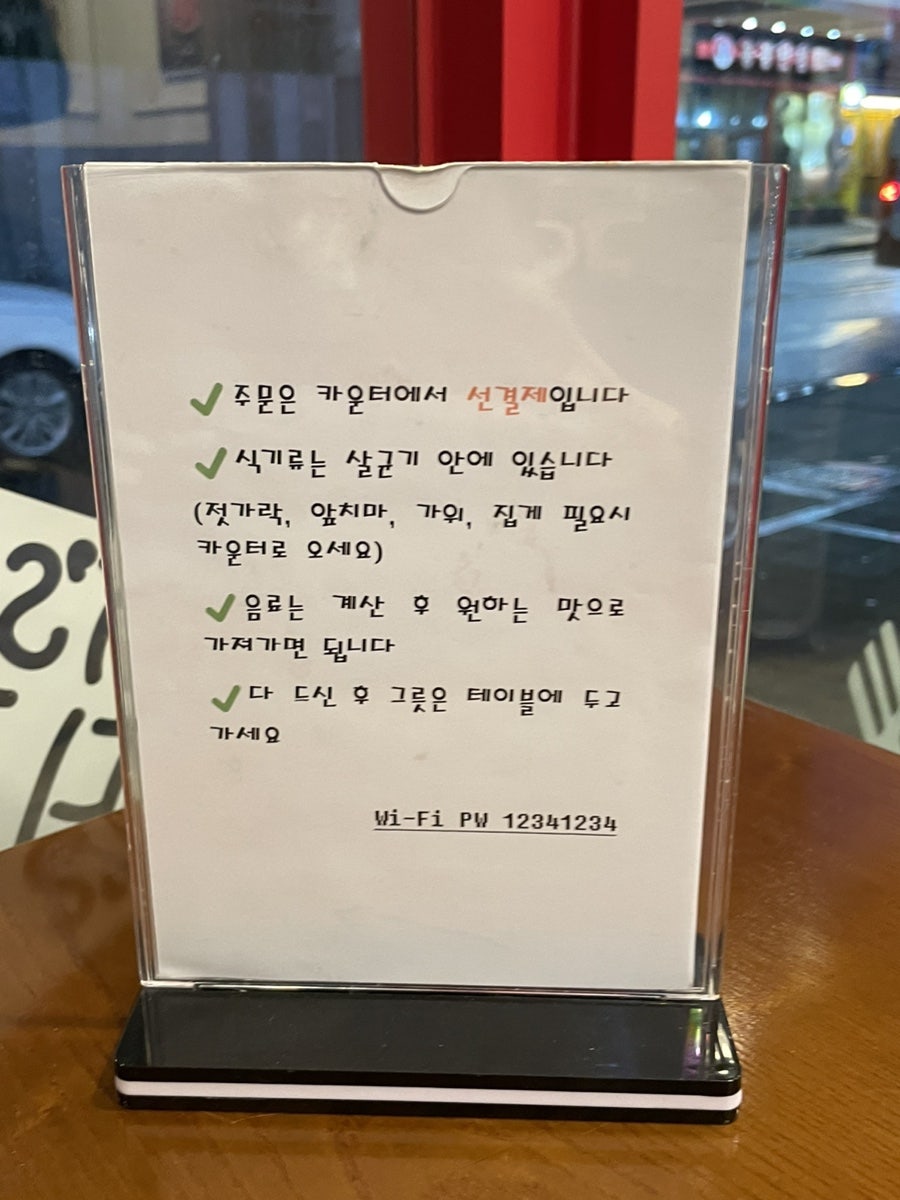 주문은 카운터에서 선결제입니다
식기류는 살균기 안에 있습니다
(젓가락, 앞치마, 가위, 집게 필요시
카운터로 오세요)
음료는 계산 후 원하는 맛으로
가져가면 됩니다
다 드신 후 그릇은 테이블에 두고
가세요
Wi-Fi PW 12341234